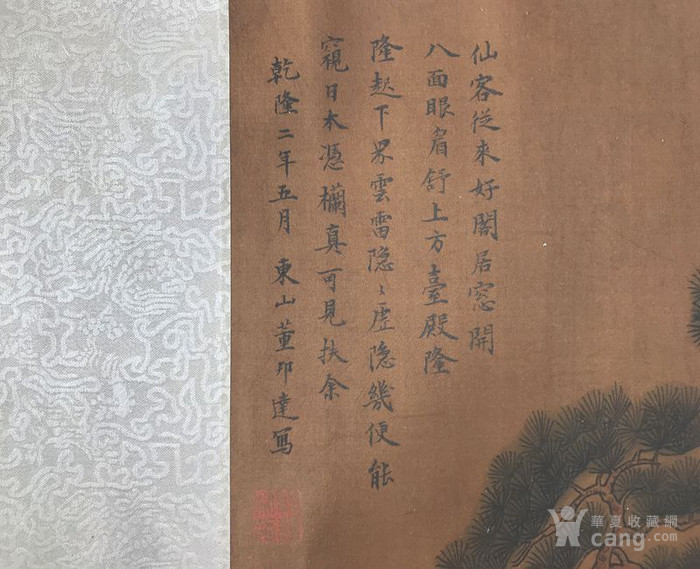 仙客從來好閣居窓開
八面眼眉舒上方臺殿隆
隆起下界雲雷隐〻虛隐幾便能
窺日本憑欄真可見扶余
乾隆二年五月 東山董邦達寫
華夏收藏網
cang.com